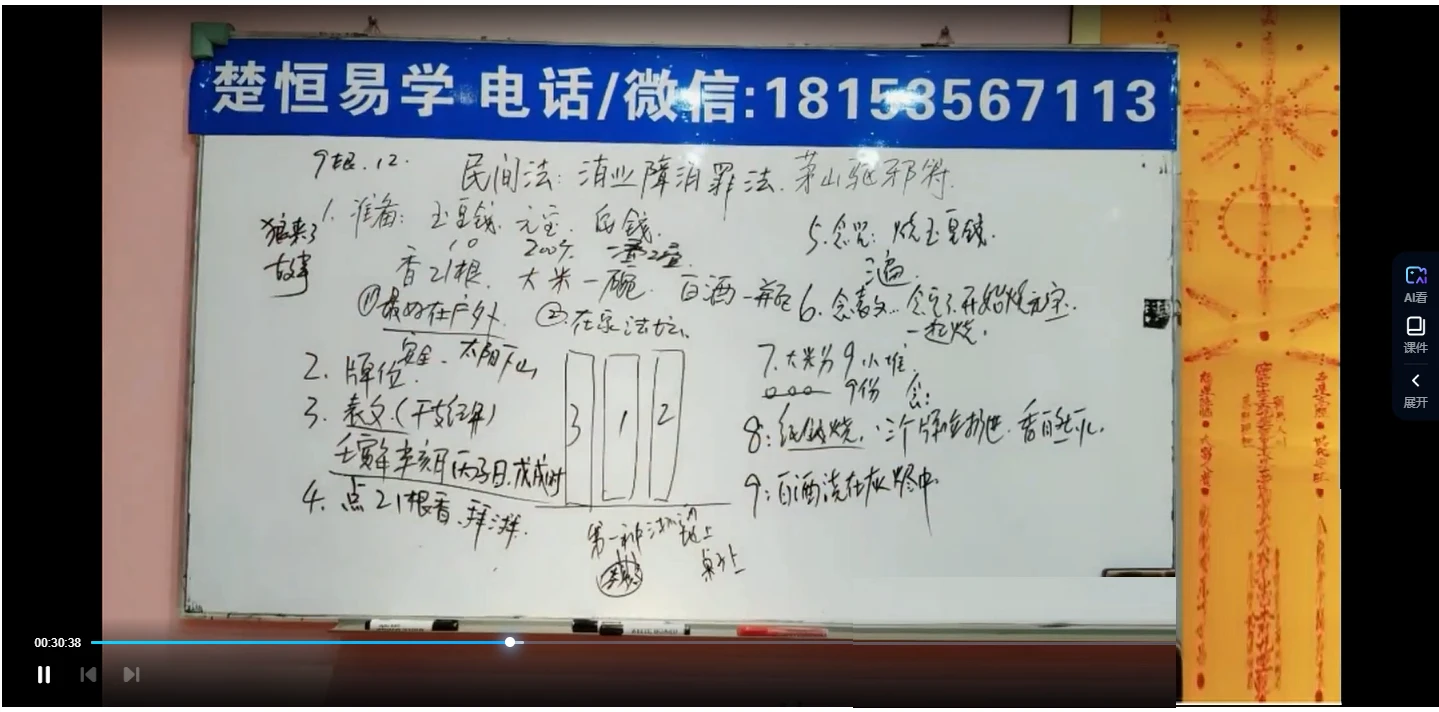 楚恒易学 电话/微信:18153567113
9根.12.
民间法: 消业障消罪法. 茅山驱邪符.
1. 准备: 玉皇钱. 元宝.
10 200个
香21根. 大米一碗. 白酒一瓶
①最好在户外. ②在家法坛.
安全. 太阳下山
2. 牌位.
3. 表文.(干支纪年)
壬寅年辛亥月丙子日.戊戌时
4. 点21根香.拜
3 1 2
第一种 地上
桌子上
狼来了
故事
5.念咒: 烧玉皇钱.
三遍
6.念表文.. 念完了.开始烧元宝.
一起烧.
7.大米分9小堆
9份 念:
8:纸钱烧. 三个牌位
9:白酒浇在灰烬中
AI看
课件
展开
00:30:38